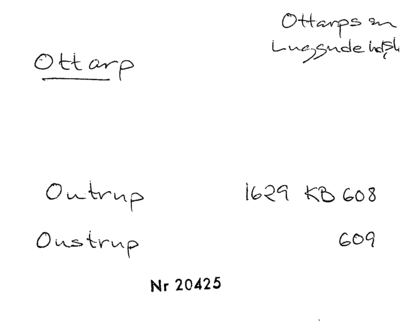 Ottarps sn
Luggude hd
Ottarp
Outrup 1629 KB 608
Oustrup 609
Nr 20425